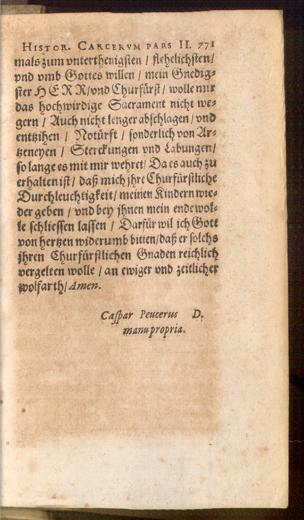 HISTOR. CARCERVM PARS II. 771
mals zum vnterthenigsten / flehelichsten/
vnd vmb Gottes willen / mein Gnedig-
ster HERR/vnd Churfürst/ wolle mir
das hochwirdige Sacrament nicht we-
gern / Auch nicht lenger abschlagen/ vnd
entzihen / Notürft / sonderlich von Ar-
tzeneyen / Sterckungen vnd Labungen/
so lange es mit mir wehret/ Da es auch zu
erhalten ist / daß mich jhre Churfürstliche
Durchleuchtigkeit/ meinen Kindern wie-
der geben / vnd bey jhnen mein ende wol-
le schliessen lassen / Darfür wil ich Gott
von hertzen widerumb bitten/daß er solchs
jhren Churfürstlichen Gnaden reichlich
vergelten wolle / an ewiger vnd zeitlicher
wolfarth/ Amen.
Caspar Peucerus D.
manu propria.